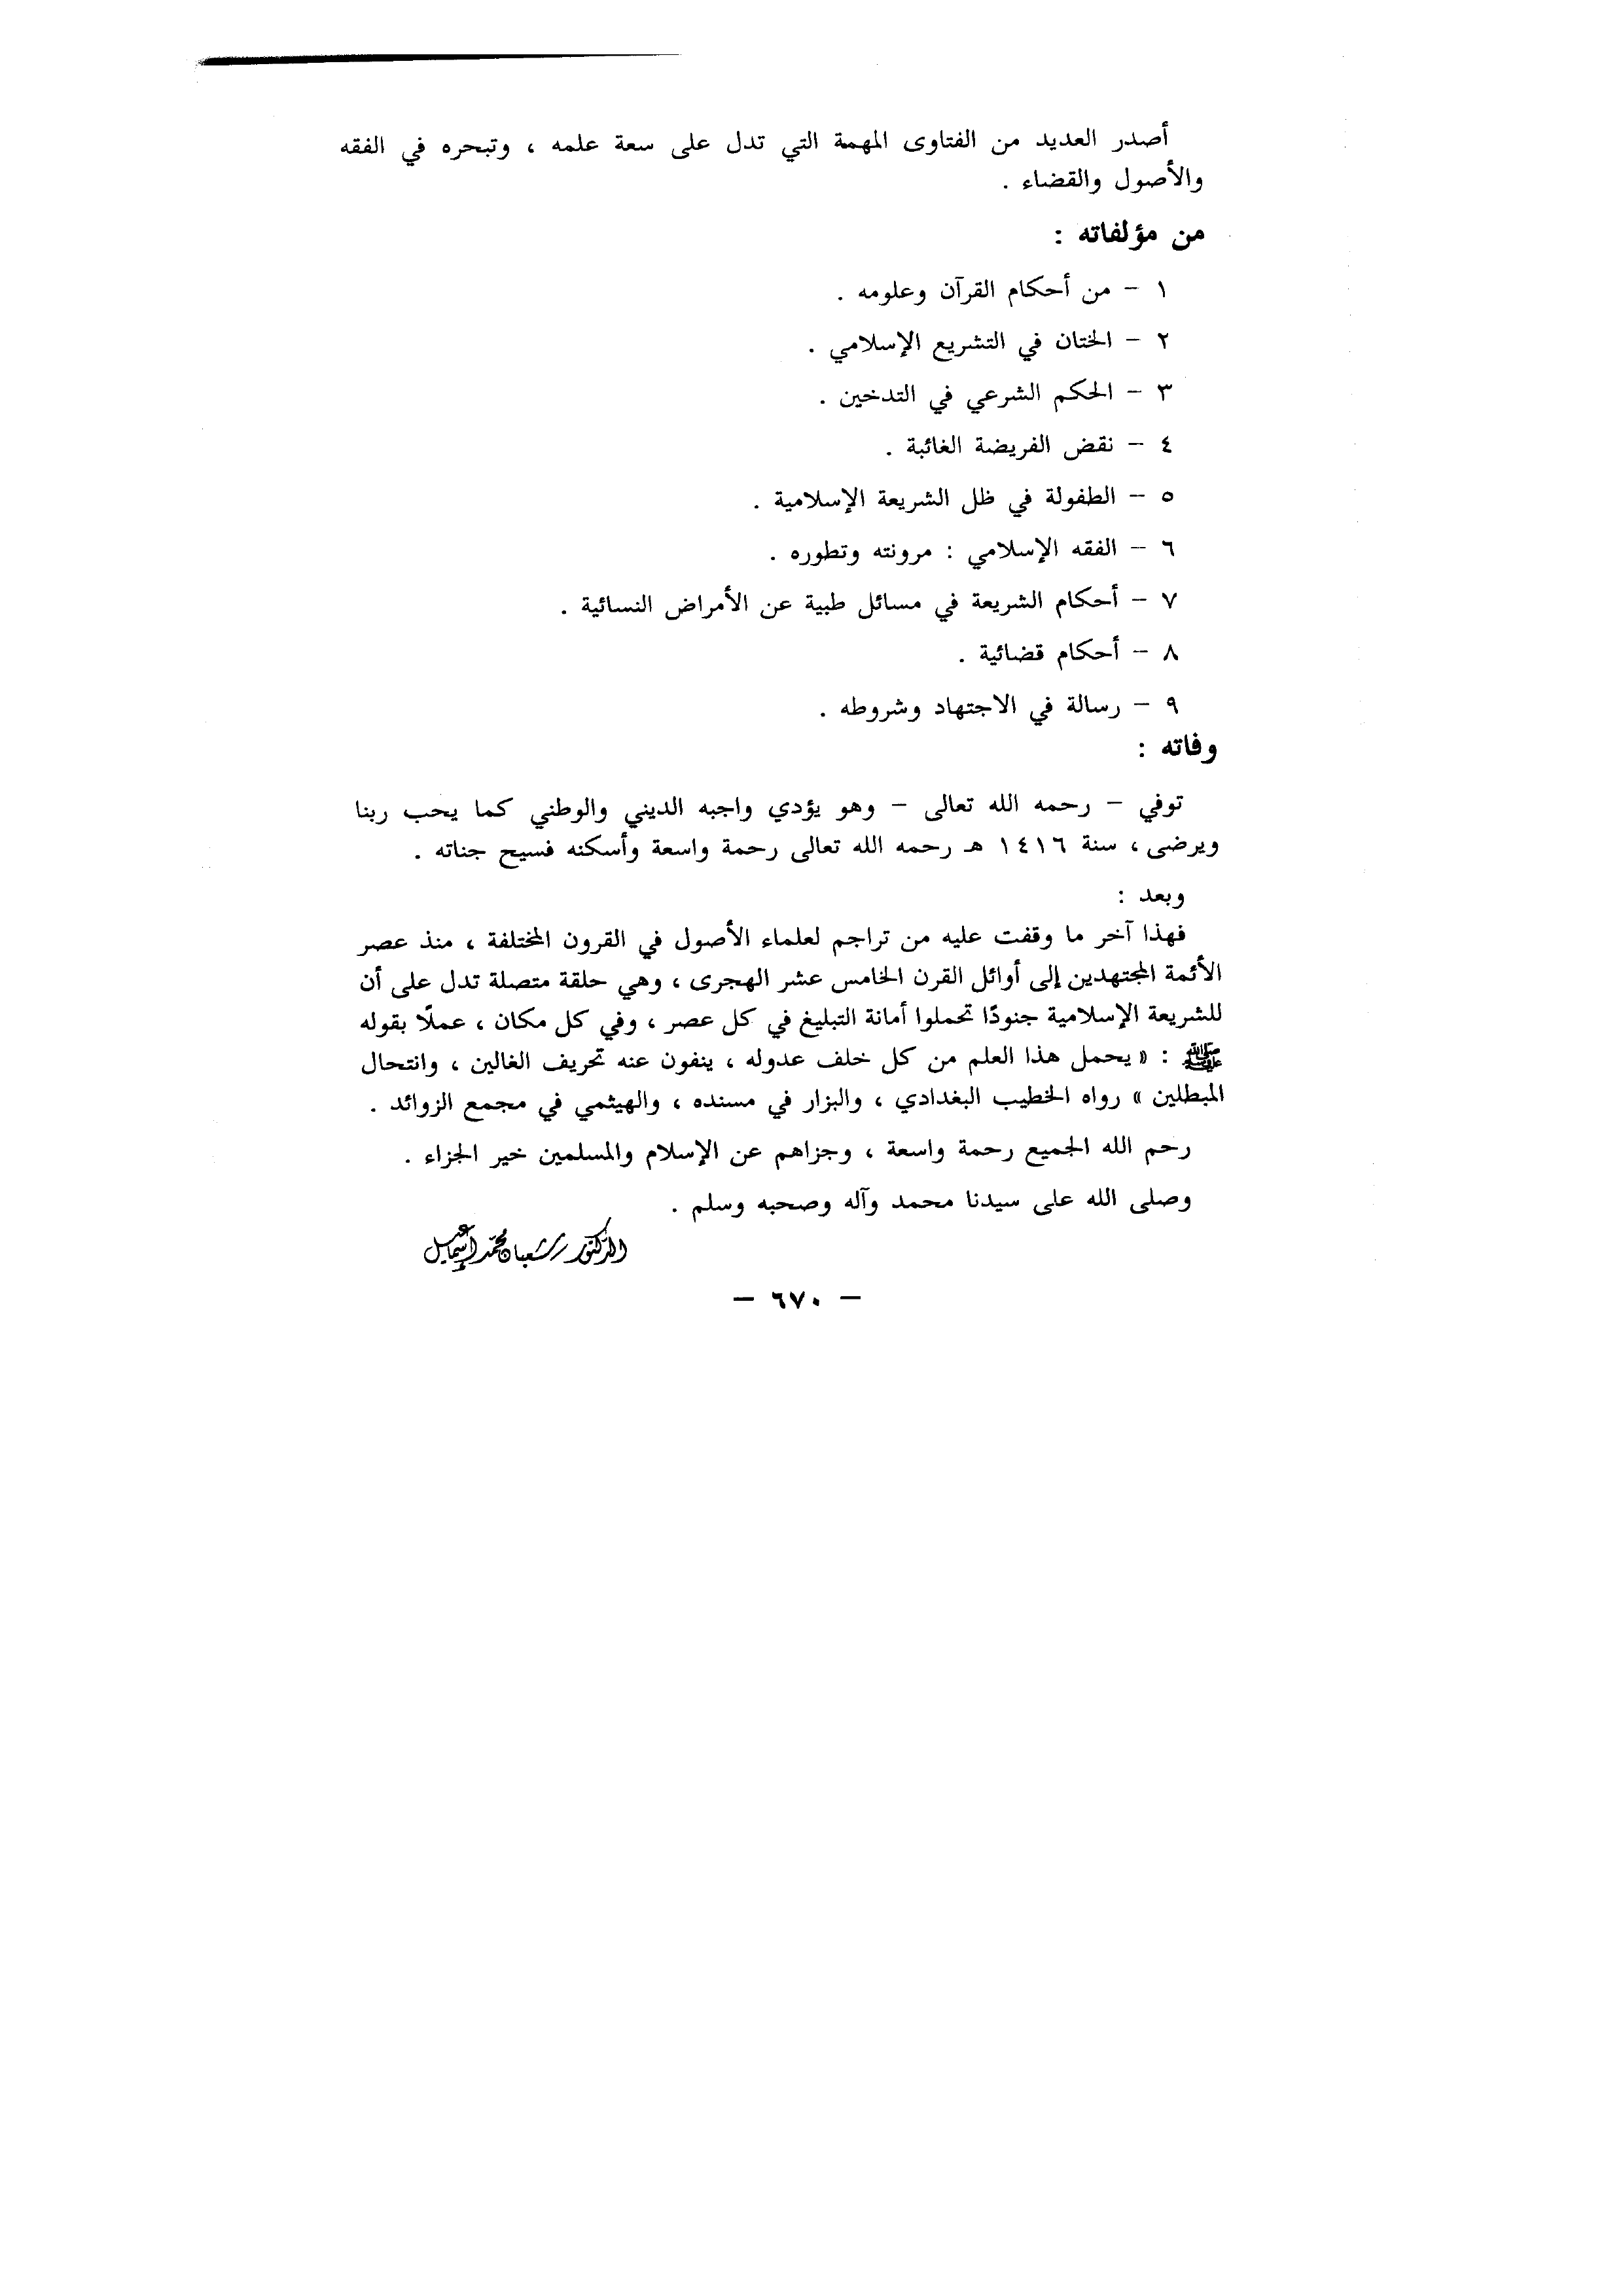 أصدر العديد من الفتاوى المهمة التي تدل على سعة علمه ، وتبحره في الفقه
والأصول والقضاء .
من مؤلفاته :
١ – من أحكام القرآن وعلومه .
٢ – الختان في التشريع الإسلامي .
٣ – الحكم الشرعي في التدخين .
٤ – نقض الفريضة الغائبة .
٥ – الطفولة في ظل الشريعة الإسلامية .
٦ – الفقه الإسلامي : مرونته وتطوره .
٧ – أحكام الشريعة في مسائل طبية عن الأمراض النسائية .
٨ – أحكام قضائية .
٩ – رسالة في الاجتهاد وشروطه .
وفاته :
توفي – رحمه الله تعالى – وهو يؤدي واجبه الديني والوطني كما يحب ربنا
ويرضى ، سنة ١٤١٦ هـ رحمه الله تعالى رحمة واسعة وأسكنه فسيح جناته .
وبعد :
فهذا آخر ما وقفت عليه من تراجم لعلماء الأصول في القرون المختلفة ، منذ عصر
الأئمة المجتهدين إلى أوائل القرن الخامس عشر الهجرى ، وهي حلقة متصلة تدل على أن
للشريعة الإسلامية جنودًا تحملوا أمانة التبليغ في كل عصر ، وفي كل مكان ، عملًا بقوله
ﷺ : « يحمل هذا العلم من كل خلف عدوله ، ينفون عنه تحريف الغالين ، وانتحال
المبطلين » رواه الخطيب البغدادي ، والبزار في مسنده ، والهيثمي في مجمع الزوائد .
رحم الله الجميع رحمة واسعة ، وجزاهم عن الإسلام والمسلمين خير الجزاء .
وصلى الله على سيدنا محمد وآله وصحبه وسلم .
الدكتور شعبان محمد إسماعيل
– ٦٧٠ –